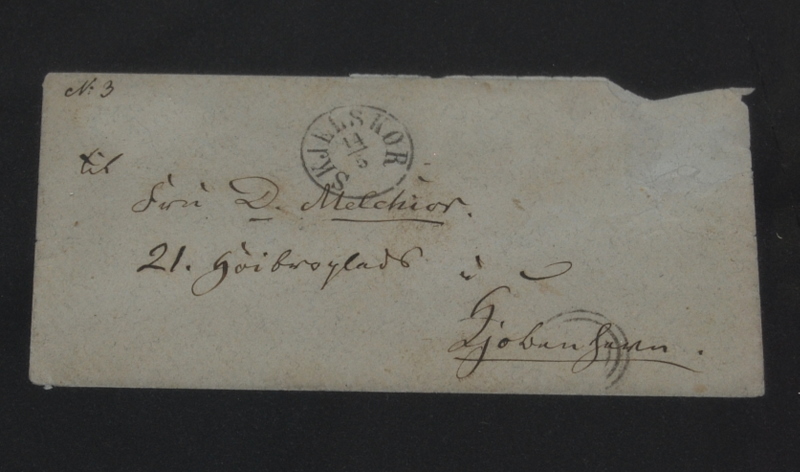 No 3
SKJELSKØR
14/5
til
Fru D. Melchior.
21. Høibroplads i
Kjøbenhavn.